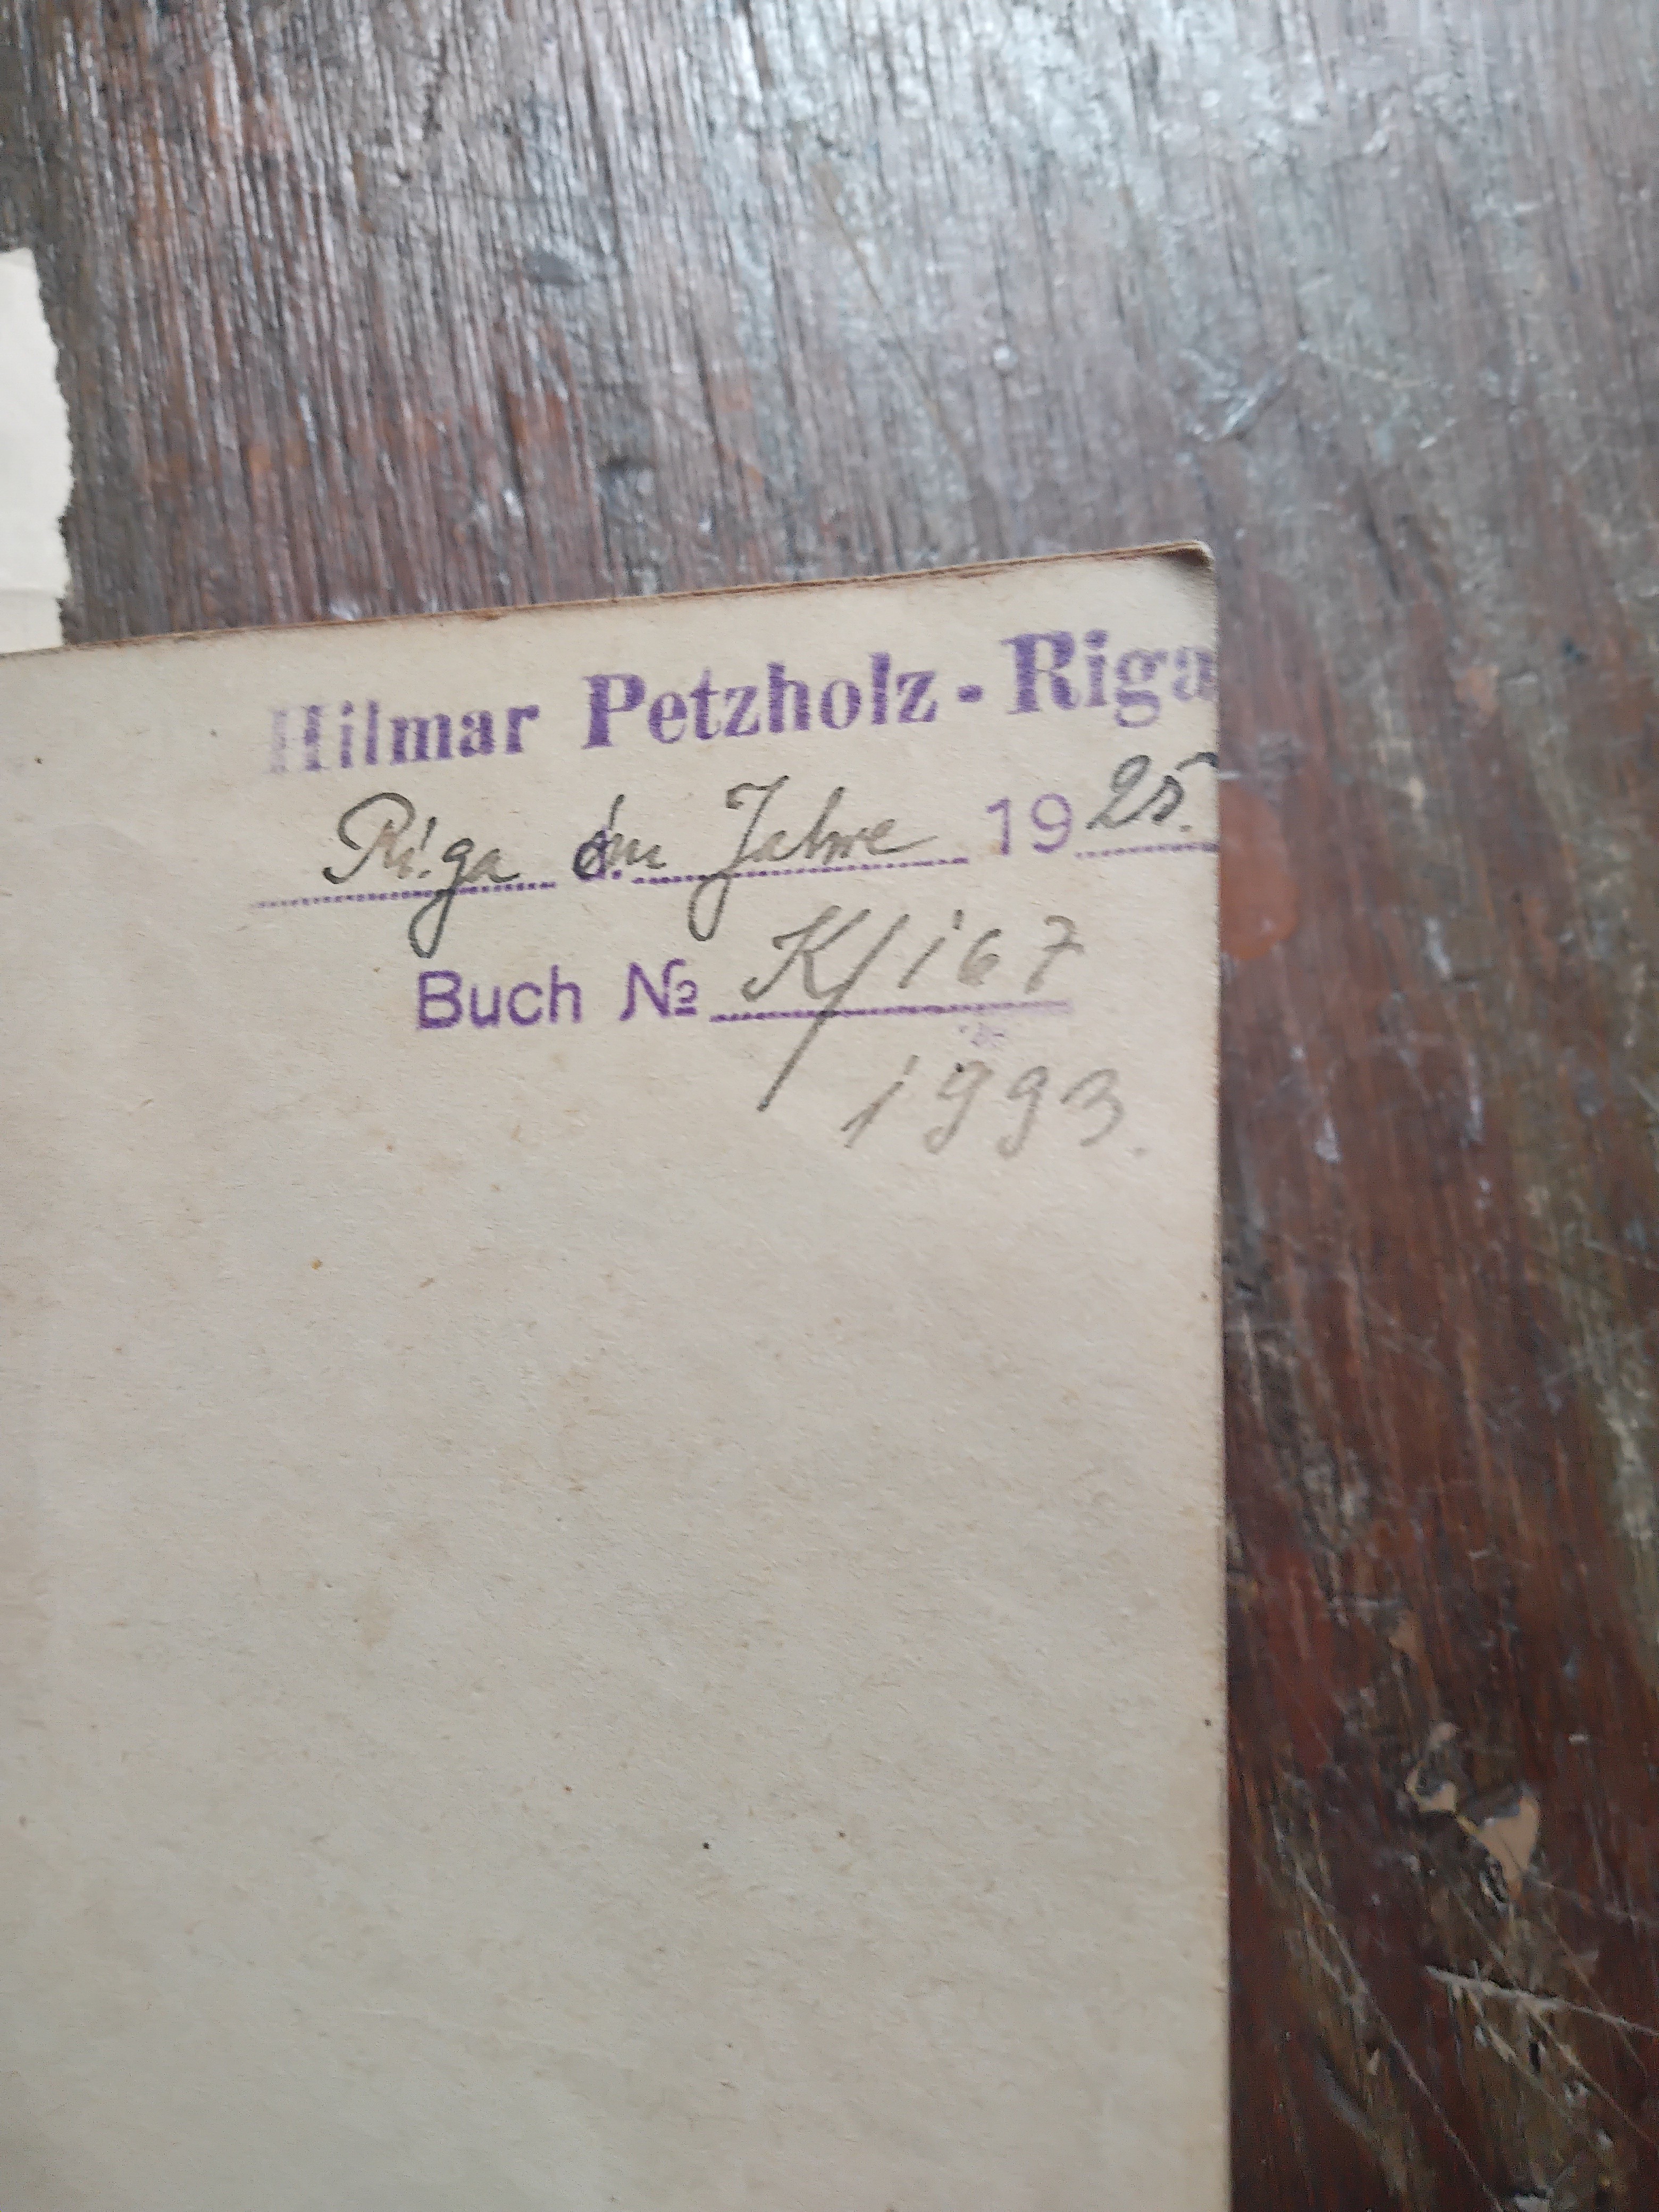 Hilmar Petzholz - Riga
Riga im Jahre 1925.
Buch № K/167
1993.